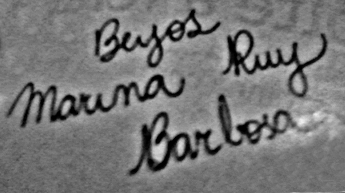 Beyos
Marina Ruy
Barbosa